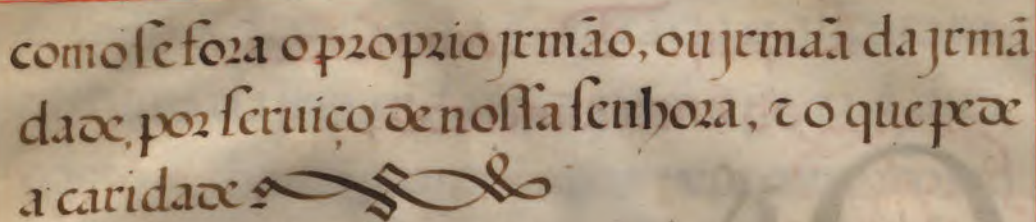 como se fora o proprio jrmão, ou jrmaã da jrmã
dade, por seruiço de nossa senhora, & o que pede
a caridade